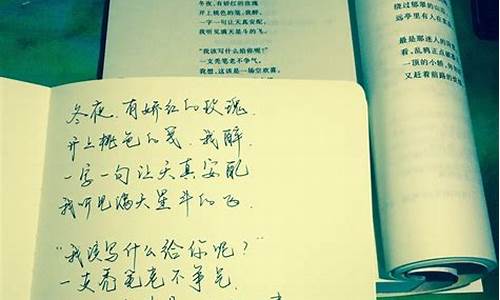 冬夜，有娇红的玫瑰
开上桃色的笺，我醉，
一字一句让天真安配，
我听见满天星斗的飞。
"我该写什么给你呢？"
一支秃笔老不争气，
我想，这该是一场空欢喜，
绕过郁翠的山
远亭里有人在
最是那迷人的
看，乱鸦正点破
一顶的小轿，
又赶着前路的
冬夜，有娇红的玫瑰，
开上桃色的笺，我醉，
一字一句让天真安配
我听见满天星斗的飞，
"我该写什么给你呢？"
一支秃笔老不争气，